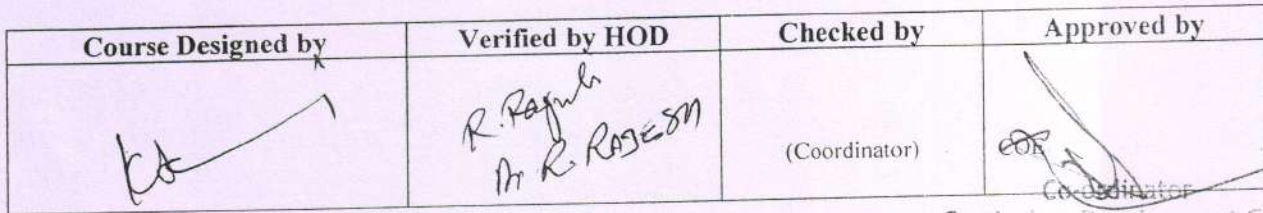 Course Designed by
Verified by HOD
Checked by
Approved by
R. Rajesh
Dr R. RAJESH
(Coordinator)
COE
Co-ordinator